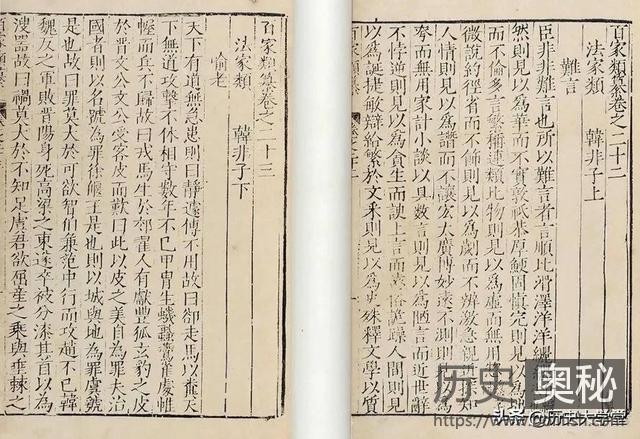 百家類纂卷之二十二
法家類 韓非子上
難言
臣非非難言也所以難言者言順比滑澤洋洋纚
然則見以為華而不實敦祗恭厚鯁固慎完則見以為
而不倫多言繁稱連類比物則見以為虛而無用
微說約徑省而不飾則見以為劌而不辯激急
人情則見以為譖而不讓宏大廣博妙遠不測則
夸而無用家計小談以具數言則見以為陋言而近世辭
不悖逆則見以為貪生而諛上言而遠俗詭躁人間則見
以為誕捷敏辯給繁於文采則見以為史殊釋文學以質
百家類纂卷之二十三
法家類 韓非子下
喻老
天下有道無急患則曰靜遽傳不用故曰卻走馬以糞天
下無道攻擊不休相守數年不已甲冑生蟣蝨鷰雀處帷
幄而兵不歸故曰戎馬生於郊翟人有獻豐狐玄豹之皮
於晉文公文公受客皮而歎曰此以皮之美自為罪夫治
國者則以名號為罪徐偃王是也則以城與地為罪虞虢
是也故曰罪莫大於可欲智伯兼范中行而攻趙不已韓
魏反之軍敗晉陽身死高梁之東遂卒被分漆其首以為
溲器故曰禍莫大於不知足虞君欲屈產之乘與垂棘之
历史 奥秘